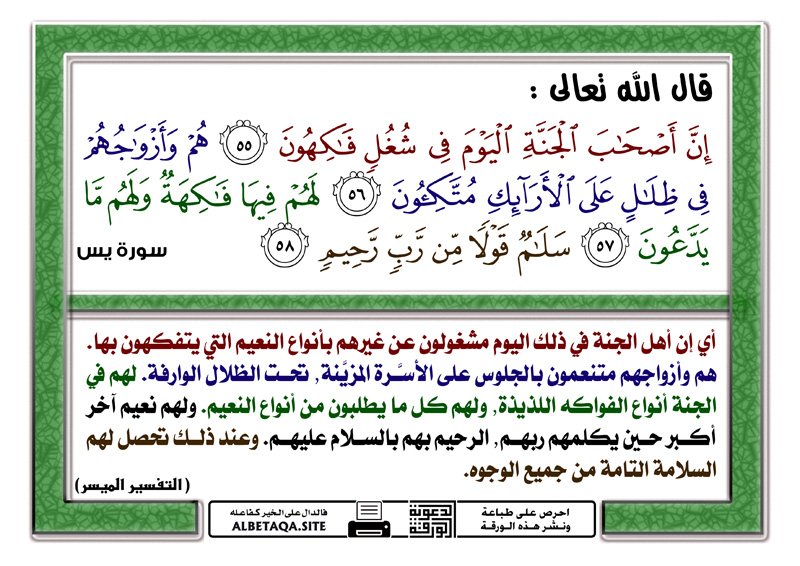 قال الله تعالى :
إِنَّ أَصْحَٰبَ ٱلْجَنَّةِ ٱلْيَوْمَ فِى شُغُلٍ فَٰكِهُونَ ٥٥ هُمْ وَأَزْوَٰجُهُمْ
فِى ظِلَٰلٍ عَلَى ٱلْأَرَآئِكِ مُتَّكِـُٔونَ ٥٦ لَهُمْ فِيهَا فَٰكِهَةٌ وَلَهُم مَّا
يَدَّعُونَ ٥٧ سَلَٰمٌ قَوْلًا مِّن رَّبٍّ رَّحِيمٍ ٥٨
سورة يس
أي إن أهل الجنة في ذلك اليوم مشغولون عن غيرهم بأنواع النعيم التي يتفكهون بها.
هم وأزواجهم متنعمون بالجلوس على الأسرَّة المزيَّنة, تحت الظلال الوارفة. لهم في
الجنة أنواع الفواكه اللذيذة, ولهم كل ما يطلبون من أنواع النعيم. ولهم نعيم آخر
أكبر حين يكلمهم ربهم, الرحيم بهم بالسلام عليهم. وعند ذلك تحصل لهم
السلامة التامة من جميع الوجوه.
(التفسير الميسر)
احرص على طباعة
ونشر هذه الورقة
الدعوية
الورقة
فالدال على الخير كفاعله
ALBETAQA.SITE